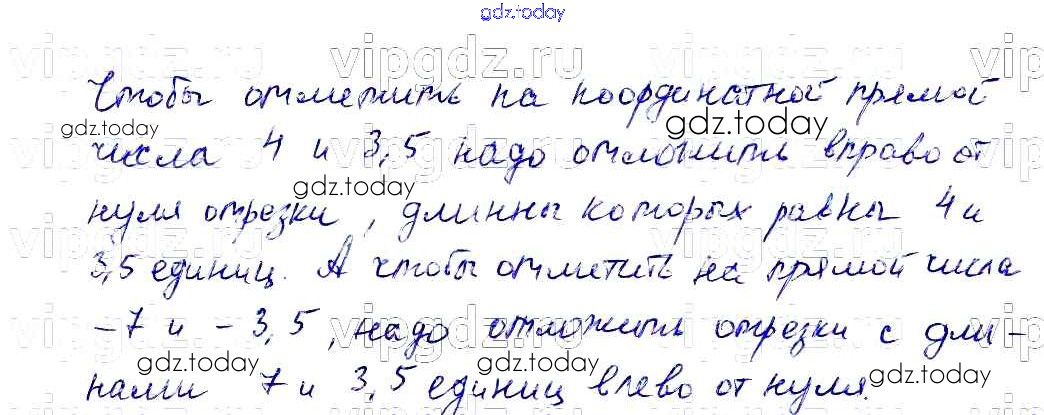 gdz.today
gdz.today
vipgdz.ru vipgdz.ru vipgdz.ru
Чтобы отметить на координатной прямой
gdz.today gdz.today
числа 4 и 3,5 надо отложить вправо от
gdz.today
нуля отрезки, длинны которых равны 4 и
vipgdz.ru vipgdz.ru vipgdz.ru
3,5 единиц. А чтобы отметить на прямой числа
-7 и -3,5, надо отложить отрезки с дли-
vipgdz.ru vipgdz.ru vipgdz.ru
gdz.today gdz.today gdz.today
нами 7 и 3,5 единиц влево от нуля.